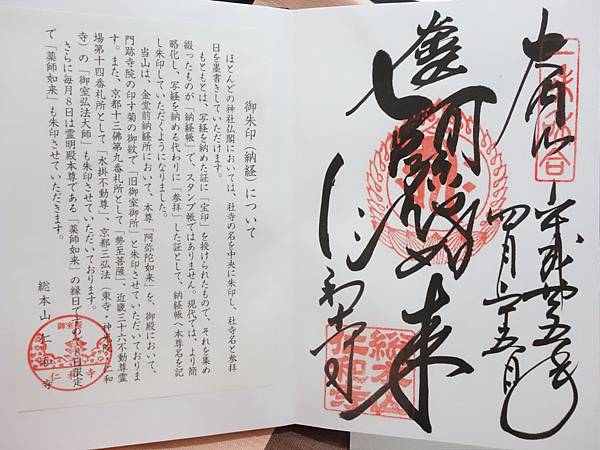 奉拝
平成廿五年
四月廿五日
阿弥陀如来
仁和寺
御朱印(納経)について
ほとんどの神社仏閣においては、社寺の名を中央に朱印し、社寺名と参拝
日を墨書きしていただけます。
もともとは、写経を納めた証に「宝印」を授けられたもので、それを集め
綴ったものが「納経帳」で、スタンプ帳ではありません。現代では、より簡
略化し、写経を納める代わりに「参拝」した証として、納経帳へ本尊名を記
し朱印していただくようになりました。
当山は、金堂前納経所において、本尊「阿弥陀如来」を、御殿において、
門跡寺院の印す菊の御紋で「旧御室御所」と朱印させていただいておりま
す。また、京都十三佛第九番札所として「勢至菩薩」、近畿三十六不動尊霊
場第十四番札所として「水掛不動尊」、京都三弘法(東寺・神光院・仁和
寺)の「御室弘法大師」も朱印させていただいております。
さらに毎月8日は霊明殿本尊である「薬師如来」の縁日で8日限定
で「薬師如来」も朱印させていただきます。
総本山仁和寺